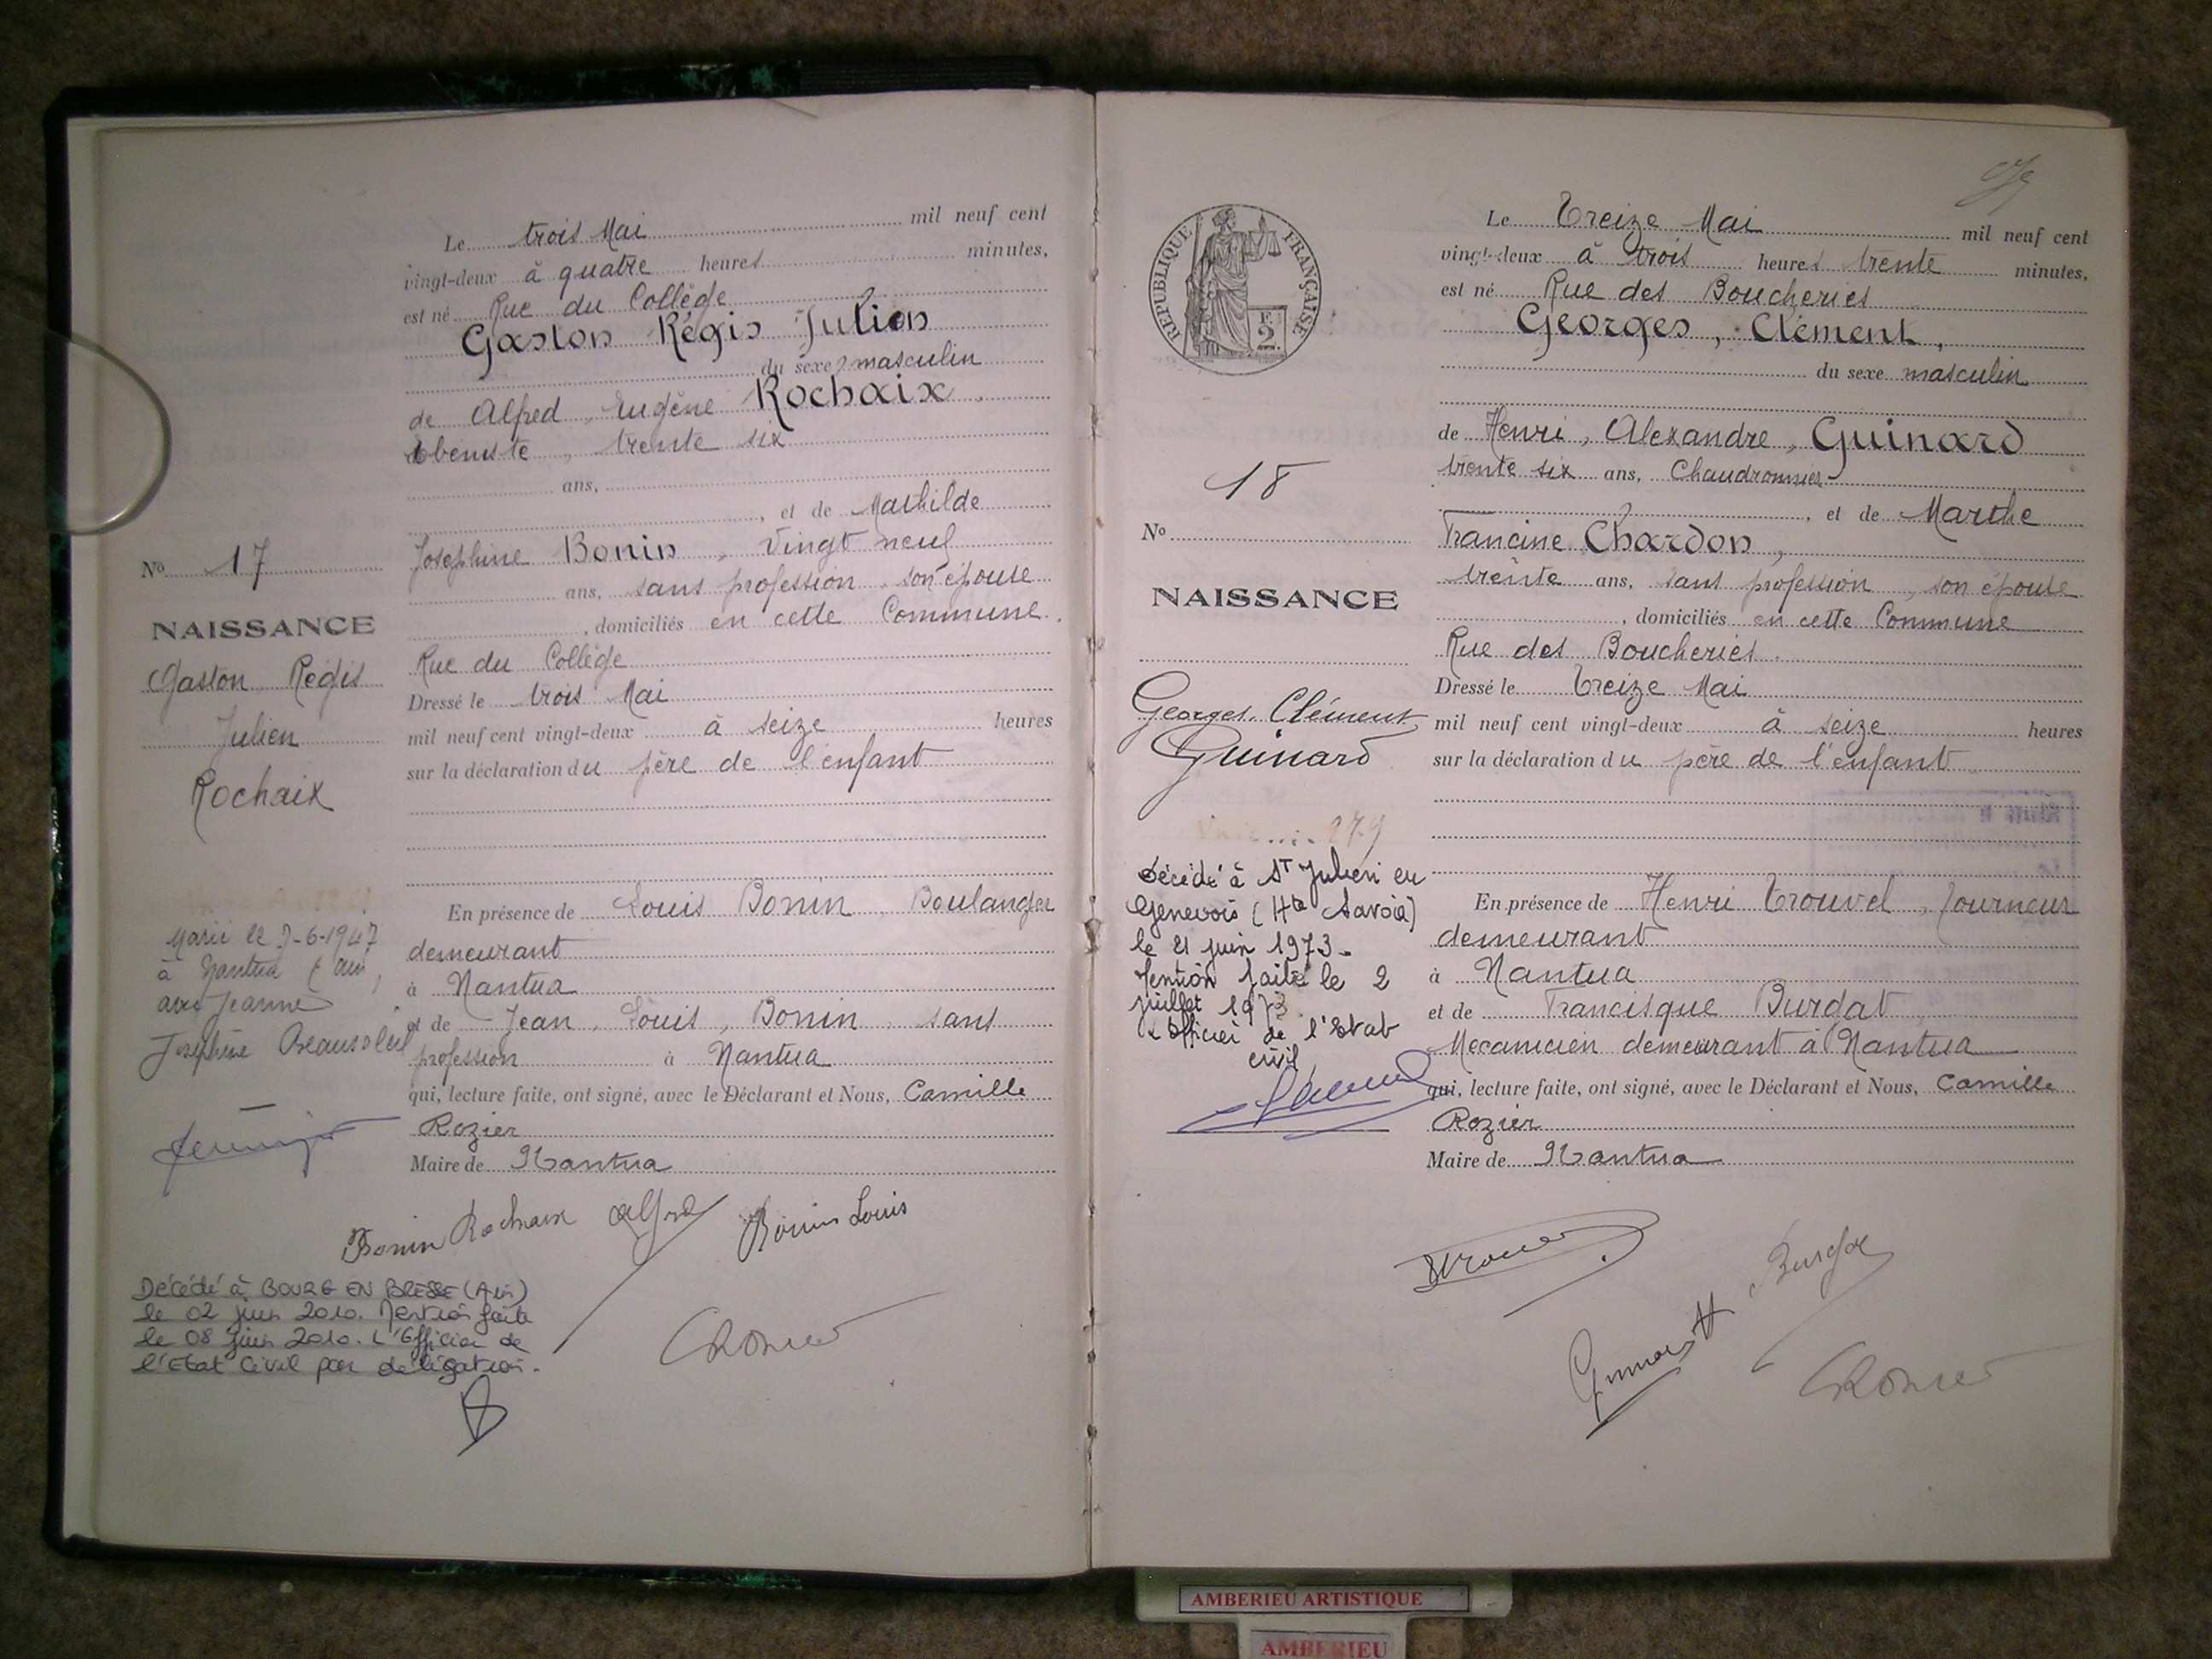 Le trois Mai mil neuf cent
vingt-deux à quatre heures minutes,
est né Rue du Collège
Gaston Régis Julien
du sexe masculin
de Alfred, Eugène Rochaix,
ébéniste, trente six
ans,
, et de Mathilde
Joséphine Bonin, vingt neuf
ans, sans profession, son épouse
, domiciliés en cette Commune.
Rue du Collège
Dressé le trois Mai
mil neuf cent vingt-deux à seize heures
sur la déclaration du père de l'enfant
En présence de Louis Bonin, Boulanger
demeurant
à Nantua
et de Jean, Louis, Bonin, sans
profession à Nantua
qui, lecture faite, ont signé, avec le Déclarant et Nous, Camille
Rozier
Maire de Nantua
Bonin Rochaix Alfred Bonin Louis
No 17
NAISSANCE
Gaston Régis
Julien
Rochaix
Marié le -6-1947
à Nantua (Ain)
avec Jeanne
Joséphine Beausoleil
Décédé à BOURG EN BRESSE (Ain)
le 02 juin 2010. Mention faite
le 08 juin 2010. L'Officier de
l'Etat Civil par délégation.
REPUBLIQUE FRANÇAISE
2 F.
Le Treize Mai mil neuf cent
vingt-deux à trois heures trente minutes,
est né Rue des Boucheries
Georges, Clément,
du sexe masculin
de Henri, Alexandre, Guinard
trente six ans, Chaudronnier
, et de Marthe
Francine Chardon,
trente ans, sans profession, son épouse
, domiciliés en cette Commune
Rue des Boucheries.
Dressé le Treize Mai
mil neuf cent vingt-deux à seize heures
sur la déclaration du père de l'enfant
En présence de Henri Trouvel, Tourneur
demeurant
à Nantua
et de Francisque Burdat,
Mécanicien demeurant à Nantua
qui, lecture faite, ont signé, avec le Déclarant et Nous, Camille
Rozier
Maire de Nantua
18
No
NAISSANCE
Georges, Clément
Guinard
Décédé à St Julien en
Genevois (Hte Savoie)
le 21 juin 1973.
Mention faite le 2
juillet 1973.
L'Officier de l'Etat
civil
AMBERIEU ARTISTIQUE
AMBERIEU